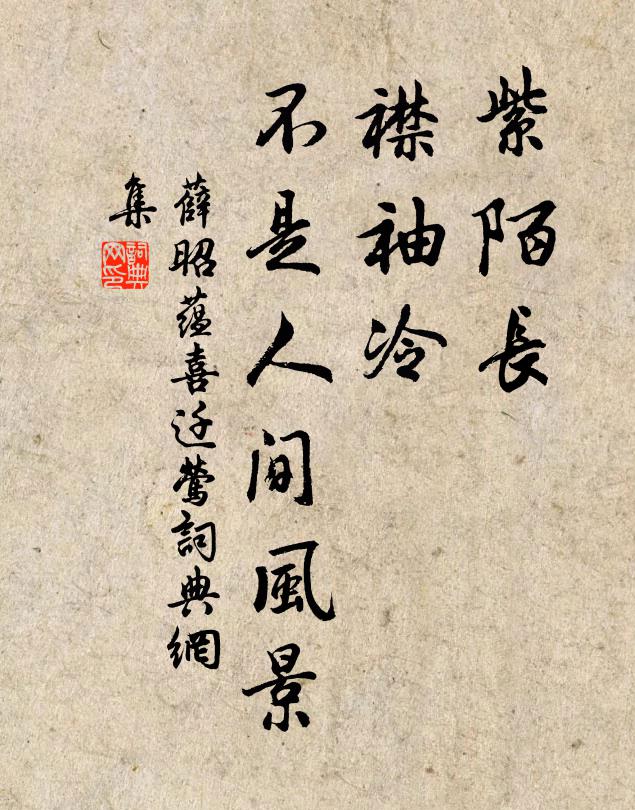 紫陌長
襟袖冷
不是人間風景
薛昭蘊喜迁鶯詞典網
集
詞典
网印